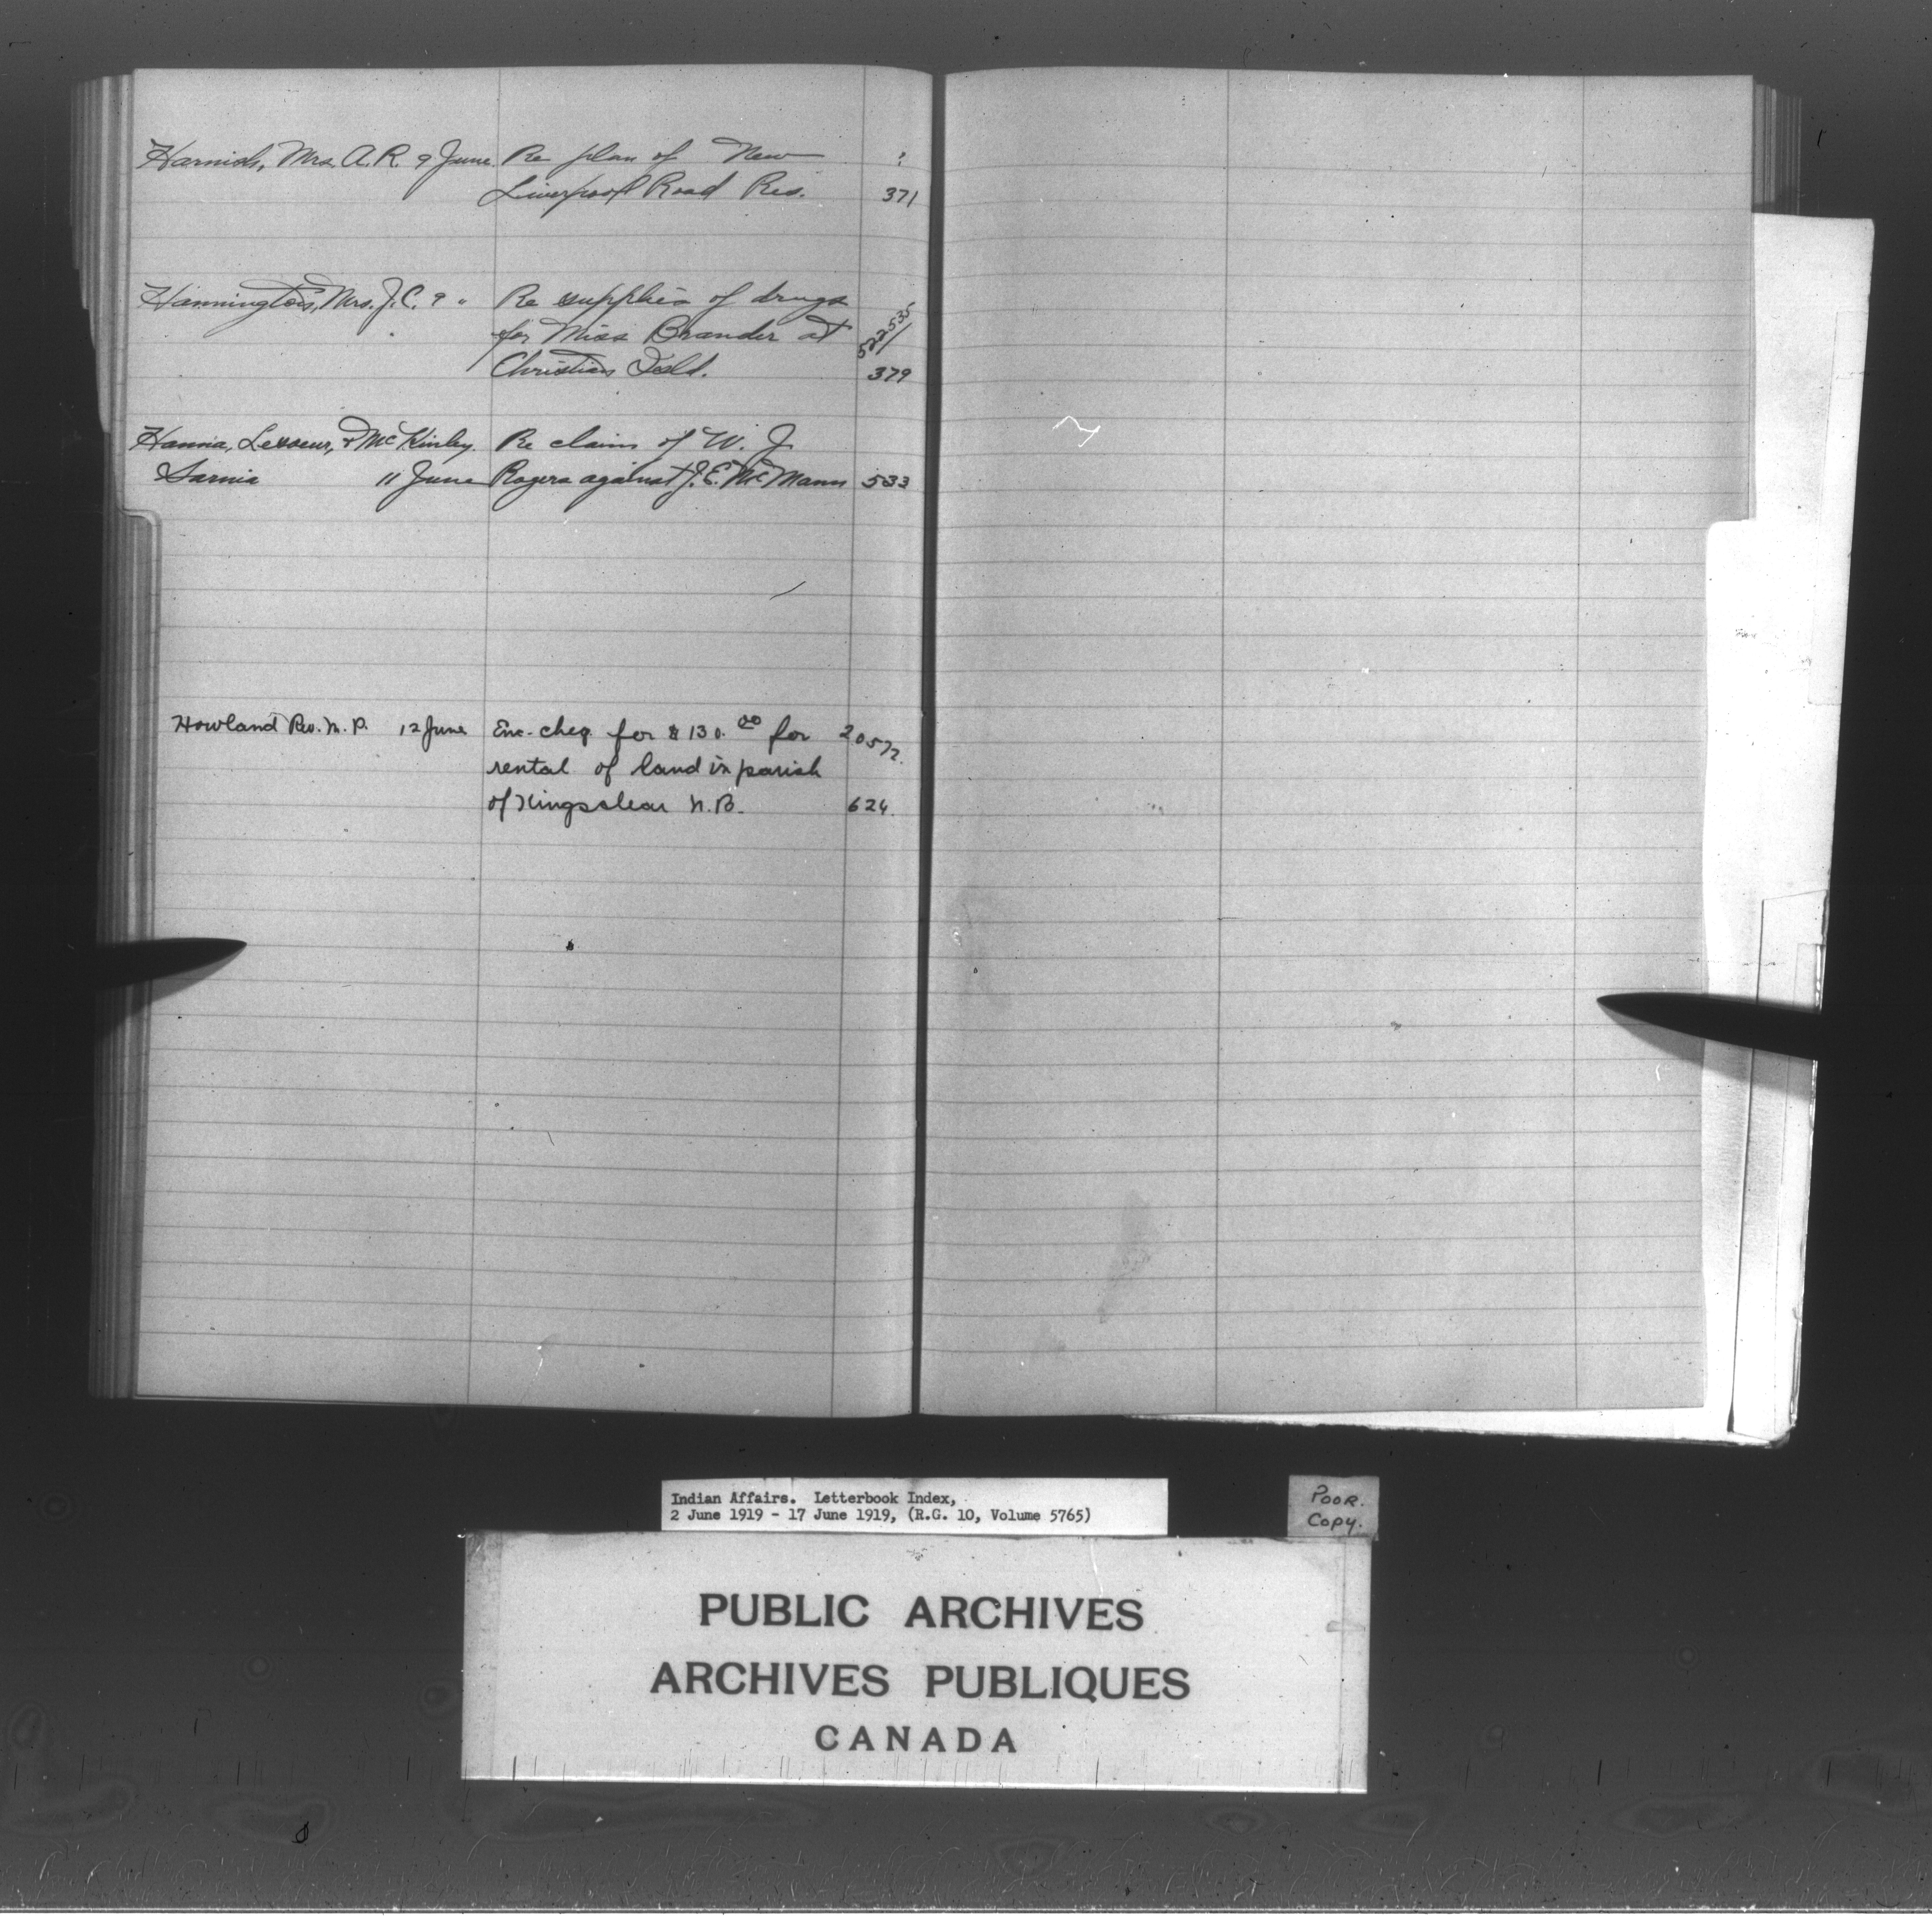 Harnish, Mrs. A. R. 9 June. Re plan of New ?
Liverpool Road Res. 371
Hannington, Mrs. J. C. 9 " Re supplies of drugs
for Miss Brander at 522535/
Christian Isld. 379
Hanna, Lesseur, & McKinley. Re claim of W. J.
Sarnia 11 June Rogers against J. E. McMann 533
Howland Rev. M. P. 12 June Enc. cheq. for $130.00 for 20572.
rental of land in parish
of Kingsclear N.B. 624.
Indian Affairs. Letterbook Index,
2 June 1919 - 17 June 1919, (R.G. 10, Volume 5765)
POOR.
COPY.
PUBLIC ARCHIVES
ARCHIVES PUBLIQUES
CANADA